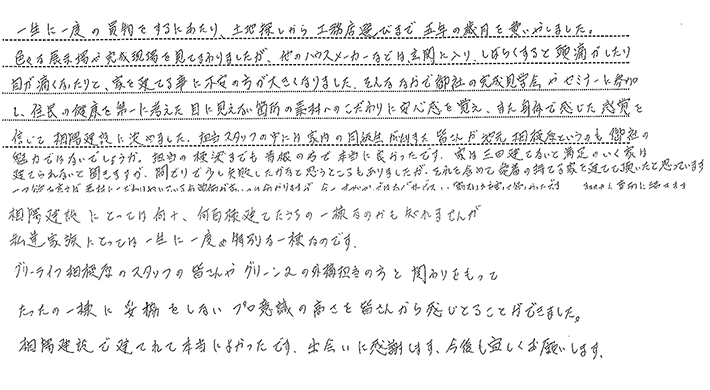 一生に一度の買物をするにあたり、土地探しから工務店選びまで五年の歳月を費いやしました。
色々な展示場や完成現場を見てまわりましたが、他のハウスメーカーなどは玄関に入り、しばらくすると頭痛がしたり
目が痛くなったりと、家を建てる事に不安の方が大きくなりました。そんななかで御社の完成見学会やセミナーに参加
し、住民の健康を第一に考えた目に見えない箇所の素材へのこだわりに安心感を覚え、また身体で感じた感覚を
信じて相陽建設に決めました。担当スタッフの中には家内の同級生がおり、また皆さんが地元相模原というのも御社の
魅力ではないでしょうか。担当の横浜までも有坂の為で本当に良かったです。家は三回建てないと満足のいく家は
建てられないと聞きますが、間どりで少し失敗したかなと思うところもありましたが、それを含めて愛着の持てる家を建てて頂いたと思っています
相陽建設にとっては何十、何百棟建てたうちの一棟なのかも知れませんが
私達家族にとっては一生に一度の特別な一棟なのです。
グリーライフ相模原のスタッフの皆さんやグリーン2の外構担当の方と関わりをもって
たったの一棟に妥協をしないプロ意識の高さを皆さんから感じとることができました。
相陽建設で建てれて本当によかったです。出会いに感謝します、今後も宜しくお願いします。